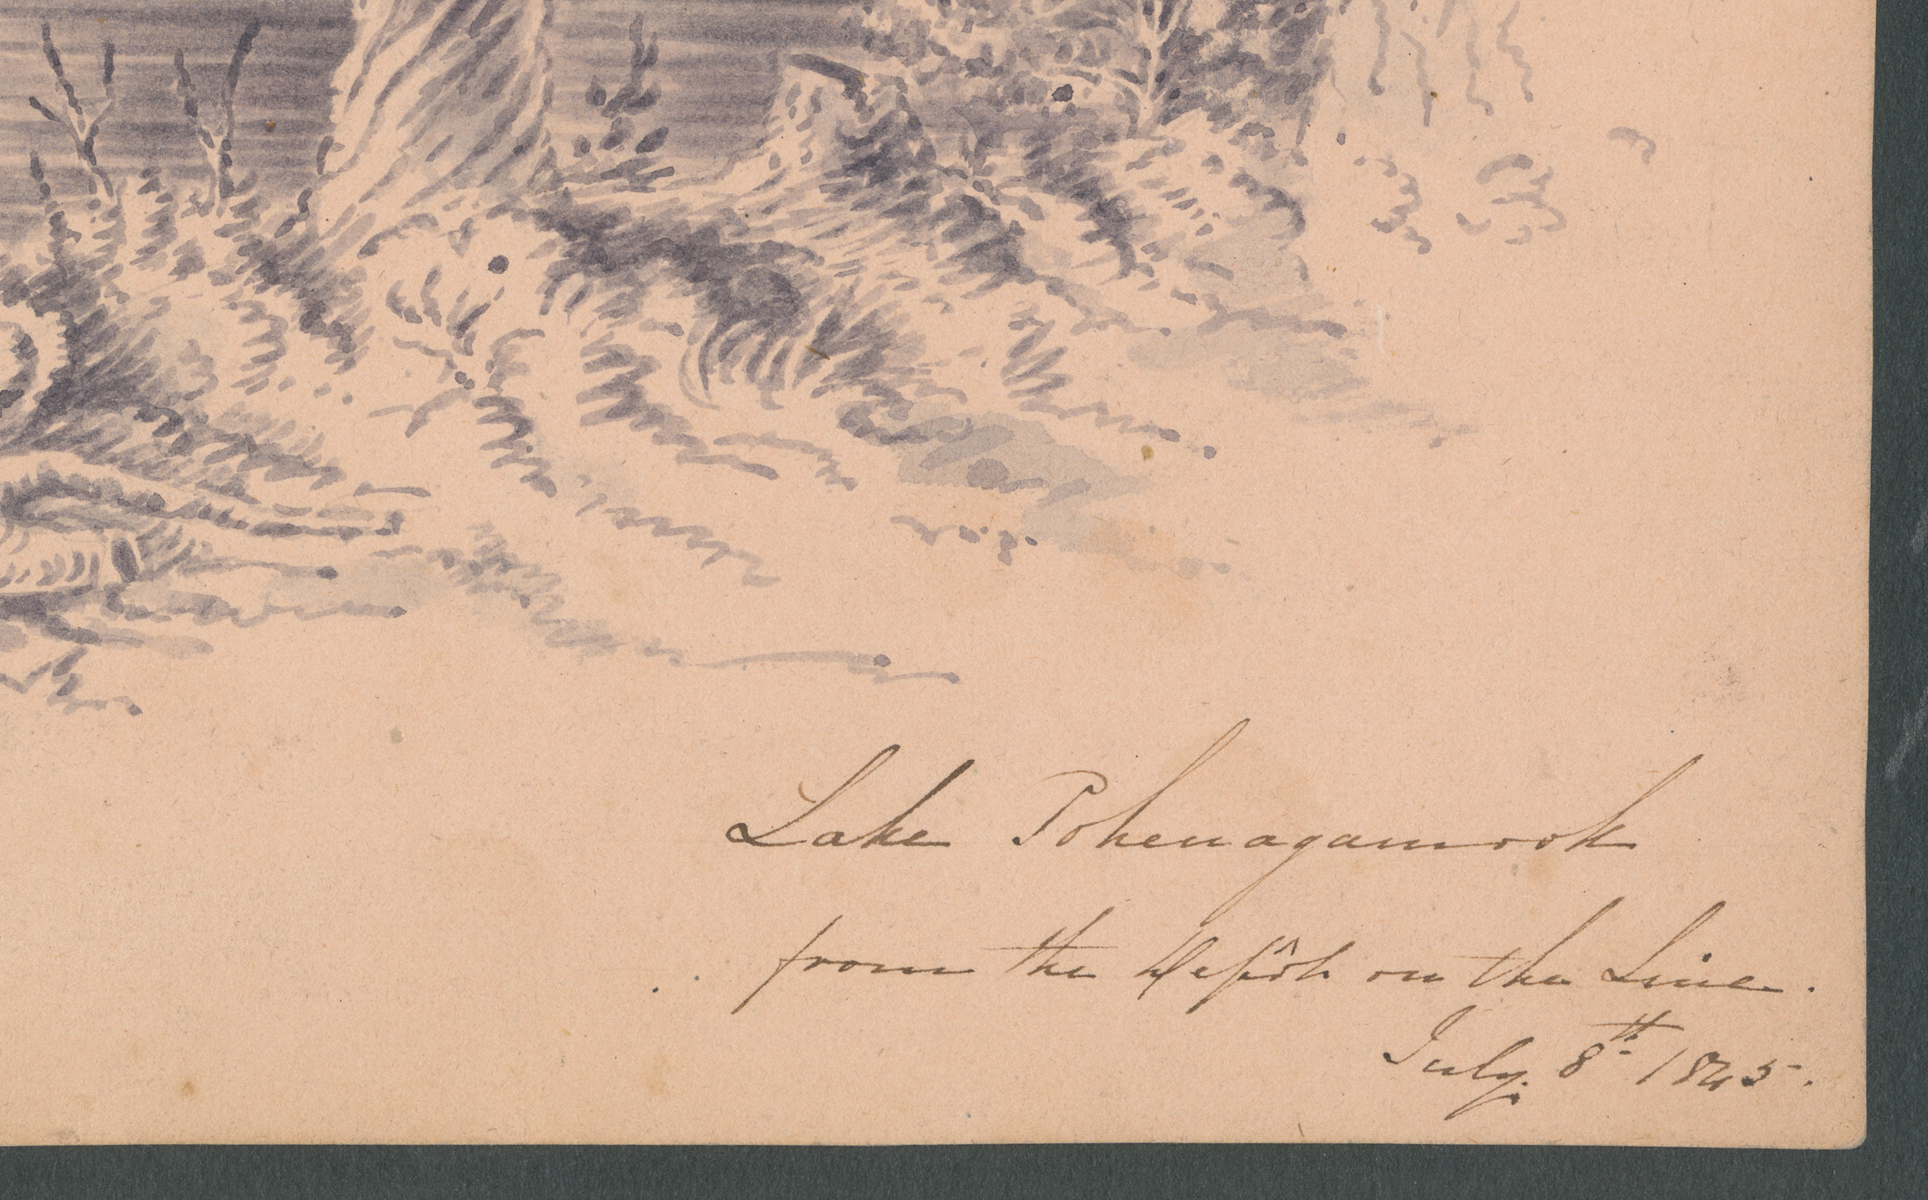 Lake Pohenagamook
from the Depôt on the Line.
July 8th 1845.